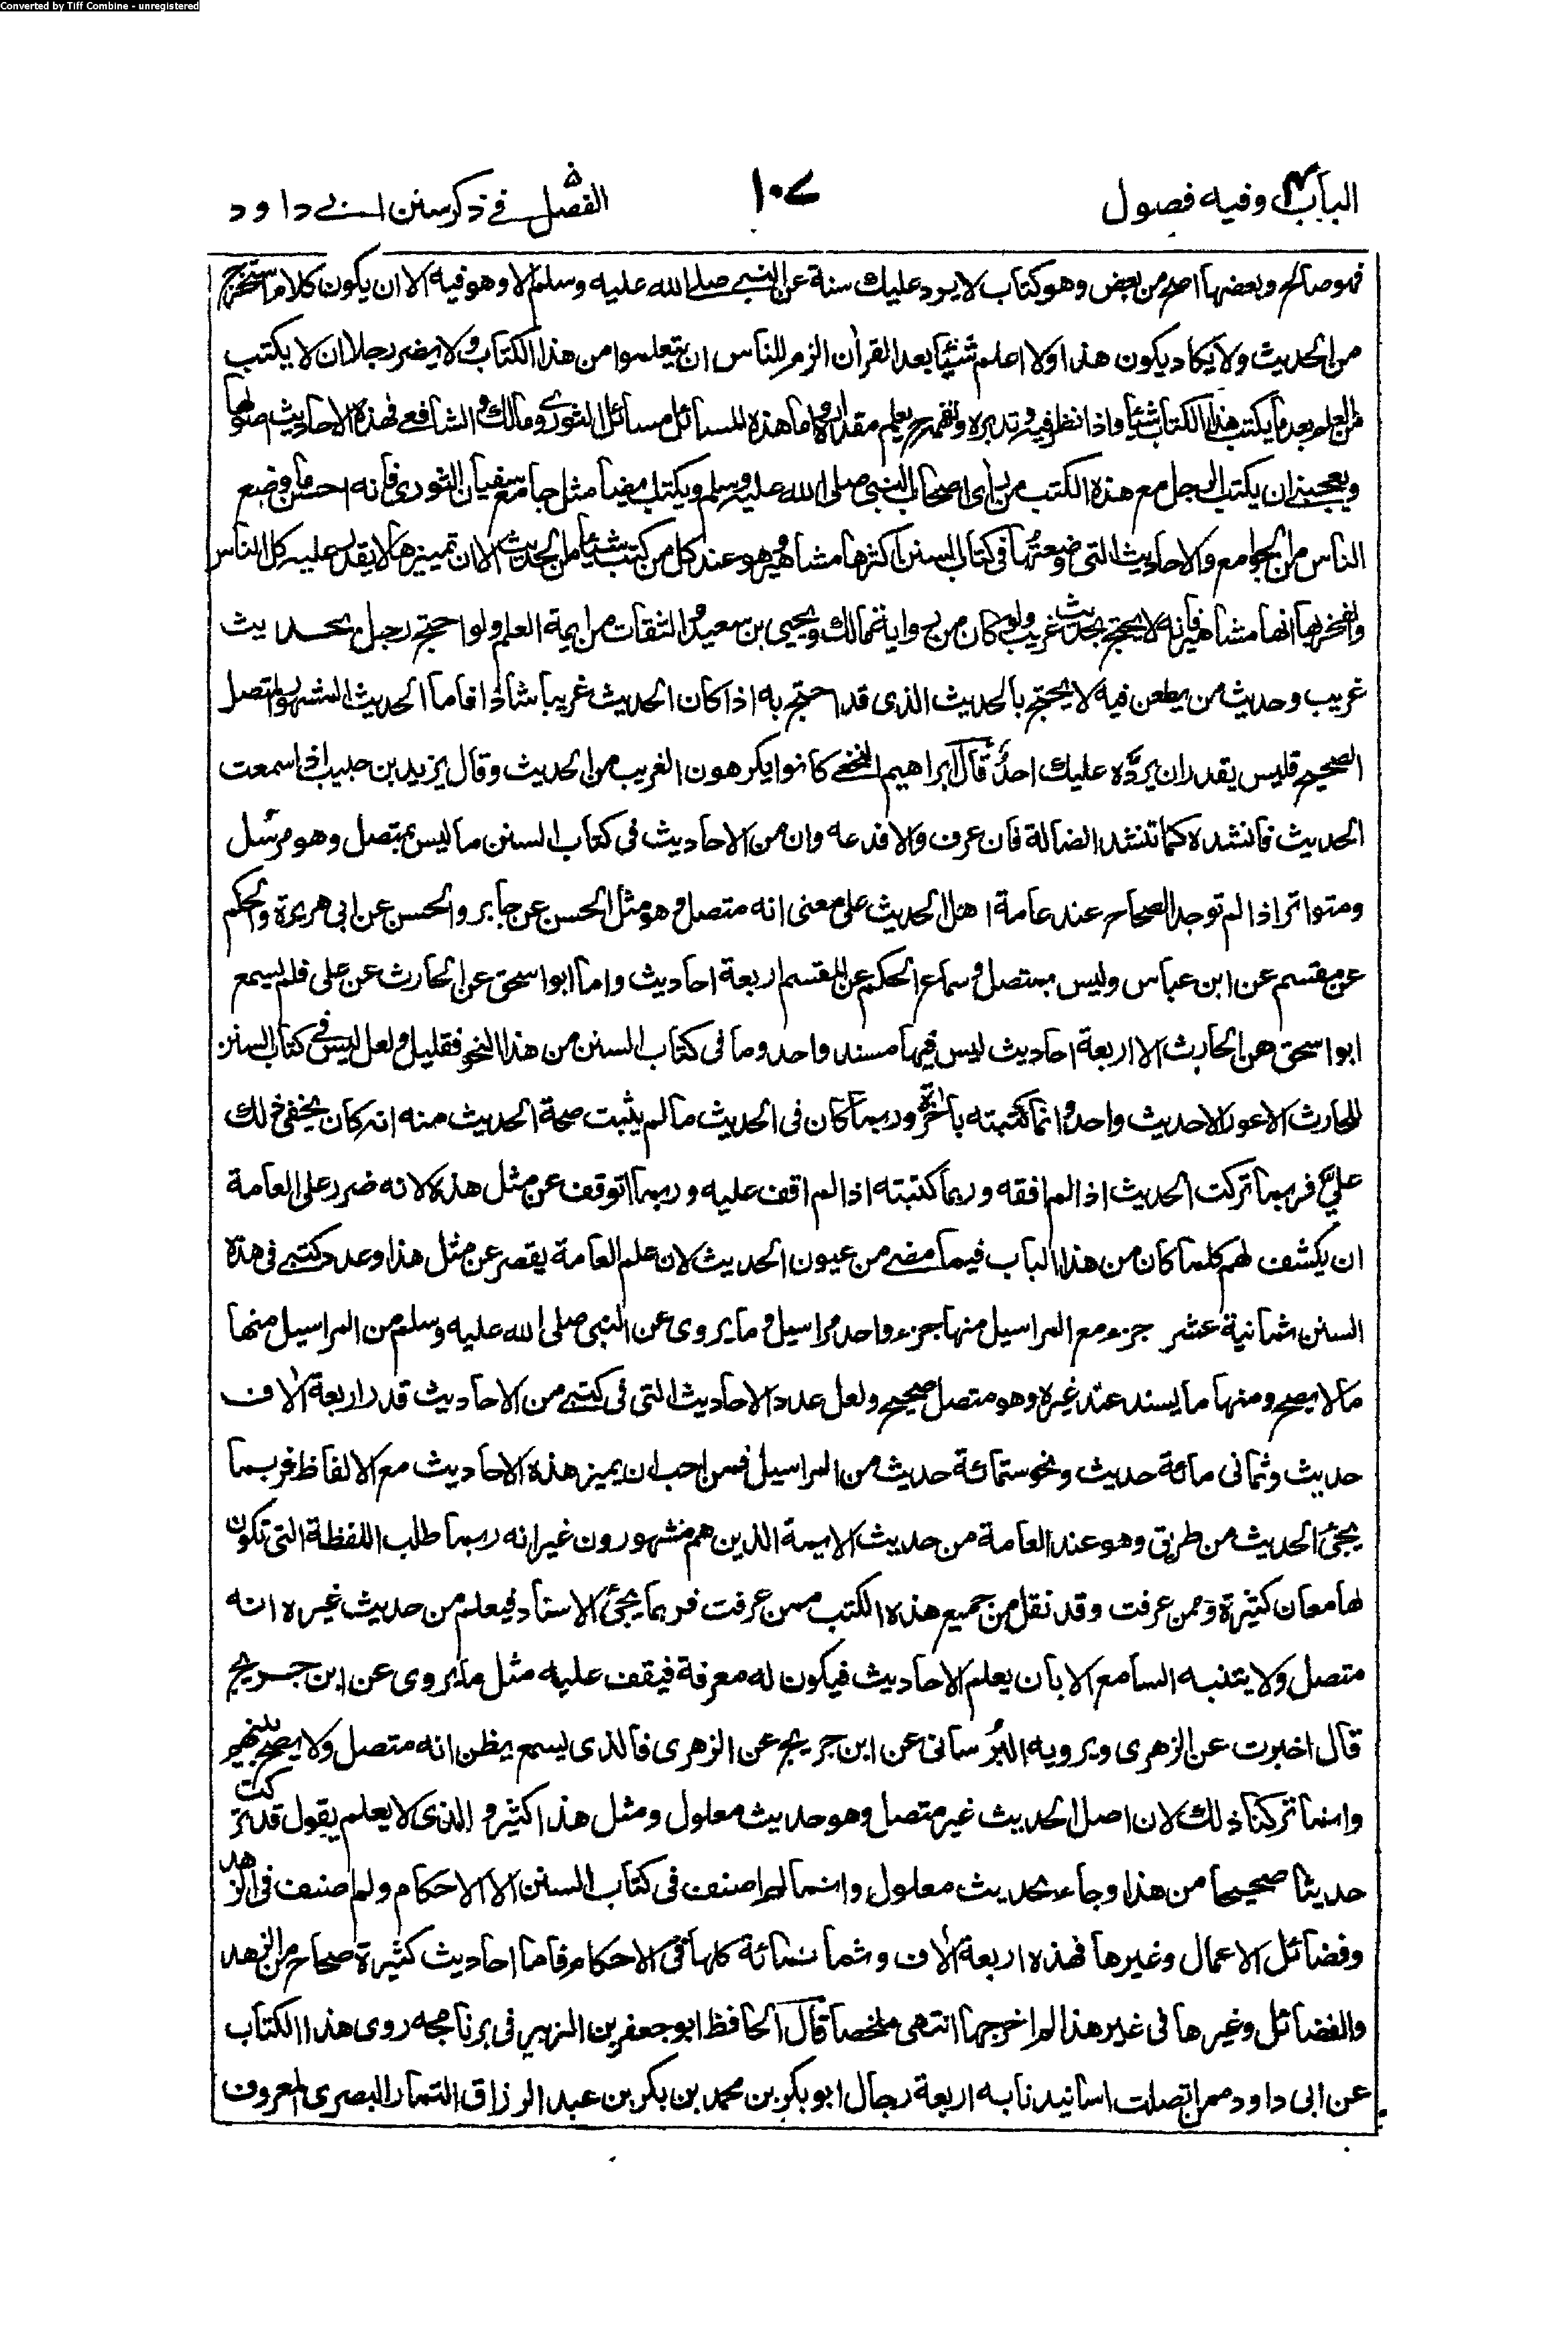 Converted by Tiff Combine - unregistered
الباب ٤ وفيه فصول
١٠٧
الفصل ٥ في ذكر سنن ابي داود
فهو صالح وبعضها اصح من بعض وهو كتاب لا يرد عليك سنة عن النبي صلى الله عليه وسلم الا وهو فيه الا ان يكون كلام استخرج
من الحديث ولا يكاد يكون هذا ولا اعلم شيئا بعد القران الزم للناس ان يتعلموا من هذا الكتاب ولا يضر رجلا ان لا يكتب
من العلم بعد ما يكتب هذا الكتاب شيئا واذا نظر فيه وتدبره وتفهمه ح يعلم مقداره واما هذه المسائل مسائل الثوري ومالك والشافعي فهذه الاحاديث اصولها
ويعجبني ان يكتب الرجل مع هذه الكتب من رأى اصحاب النبي صلى الله عليه وسلم ويكتب ايضا مثل جامع سفيان الثوري فانه احسن ما وضع
الناس من الجوامع والاحاديث التي وضعتها في كتاب السنن اكثرها مشاهير وهو عند كل من كتب شيئا من الحديث الا ان تمييزها لا يقدر عليه كل الناس
والفخر بها انها مشاهير فانه لا يحتج بحديث غريب ولو كان من رواية مالك ويحيى بن سعيد والثقات من ايمة العلم ولو احتج رجل بحديث
غريب وحديث من يطعن فيه لا يحتج بالحديث الذي قد احتج به اذا كان الحديث غريبا شاذا فاما الحديث المشهور المتصل
الصحيح فليس يقدر ان يردّه عليك احدٌ قال ابراهيم النخعي كانوا يكرهون الغريب من الحديث وقال يزيد بن حبيب اذا سمعت
الحديث فانشده كما تنشد الضالة فان عرف والا فدعه وان من الاحاديث في كتاب السنن ما ليس بمتصل وهو مرسل
ومتواتر اذا لم توجد الصحاح عند عامة اهل الحديث على معنى انه متصل وهو مثل الحسن عن جابر والحسن عن ابي هريرة والحكم
عن مقسم عن ابن عباس وليس بمتصل وسماع الحكم عن المقسم اربعة احاديث واما ابو اسحق عن الحارث عن علي فلم يسمع
ابو اسحق عن الحارث الا اربعة احاديث ليس فيها مسند واحد وما في كتاب السنن من هذا النحو فقليل ولعل ليس في كتاب السنن
للحارث الاعور الا حديث واحد وانما كتبته باخرة وربما كان في الحديث ما لم يثبت صحة الحديث منه انه كان يخفى ذلك
عليّ فربما تركت الحديث اذا لم افقه وربما كتبته اذا لم اقف عليه وربما اتوقف عن مثل هذه لانه ضرر على العامة
ان يكشف لهم كلما كان من هذا الباب فيما مضى من عيون الحديث لان علم العامة يقصر عن مثل هذا وعدد كتبي في هذه
السنن ثمانية عشر جزء مع المراسيل منها جزء واحد مراسيل وما يروى عن النبي صلى الله عليه وسلم من المراسيل منها
ما لا يصح ومنها ما يسند عند غيره وهو متصل صحيح ولعل عدد الاحاديث التي في كتبي من الاحاديث قدر اربعة الاف
حديث وثماني مائة حديث ونحو ستمائة حديث من المراسيل فمن احب ان يميز هذه الاحاديث مع الالفاظ فربما
يجئ الحديث من طريق وهو عند العامة من حديث الايمة الذين هم مشهورون غير انه ربما طلب اللفظة التي تكون
لها معان كثيرة وممن عرفت وقد نقل من جميع هذه الكتب ممن عرفت فربما يجئ الاسناد فيعلم من حديث غيره انه
متصل ولا يتنبه السامع الا بان يعلم الاحاديث فيكون له معرفة فيقف عليه مثل ما يروى عن ابن جريج
قال اخبرت عن الزهري ويرويه البُرساني عن ابن جريج عن الزهري فالذي يسمع يظن انه متصل ولا يصح بينهم
وانما تركنا ذلك لان اصل الحديث غير متصل وهو حديث معلول ومثل هذا كثير والذي لا يعلم يقول قد تركت
حديثا صحيحا من هذا وجاء بحديث معلول وانما لم اصنف في كتاب السنن الا الاحكام ولم اصنف في الزهد
وفضائل الاعمال وغيرها فهذه اربعة الاف وثمانمائة كلها في الاحكام فاما احاديث كثيرة صحاح من الزهد
والفضائل وغيرها في غير هذا لم اخرجها انتهى ملخصا قال الحافظ ابو جعفر بن الزبير في برنامجه روى هذا الكتاب
عن ابي داود ممن اتصلت اسانيدنا به اربعة رجال ابو بكر بن محمد بن بكر بن عبد الرزاق التمار البصري المعروف